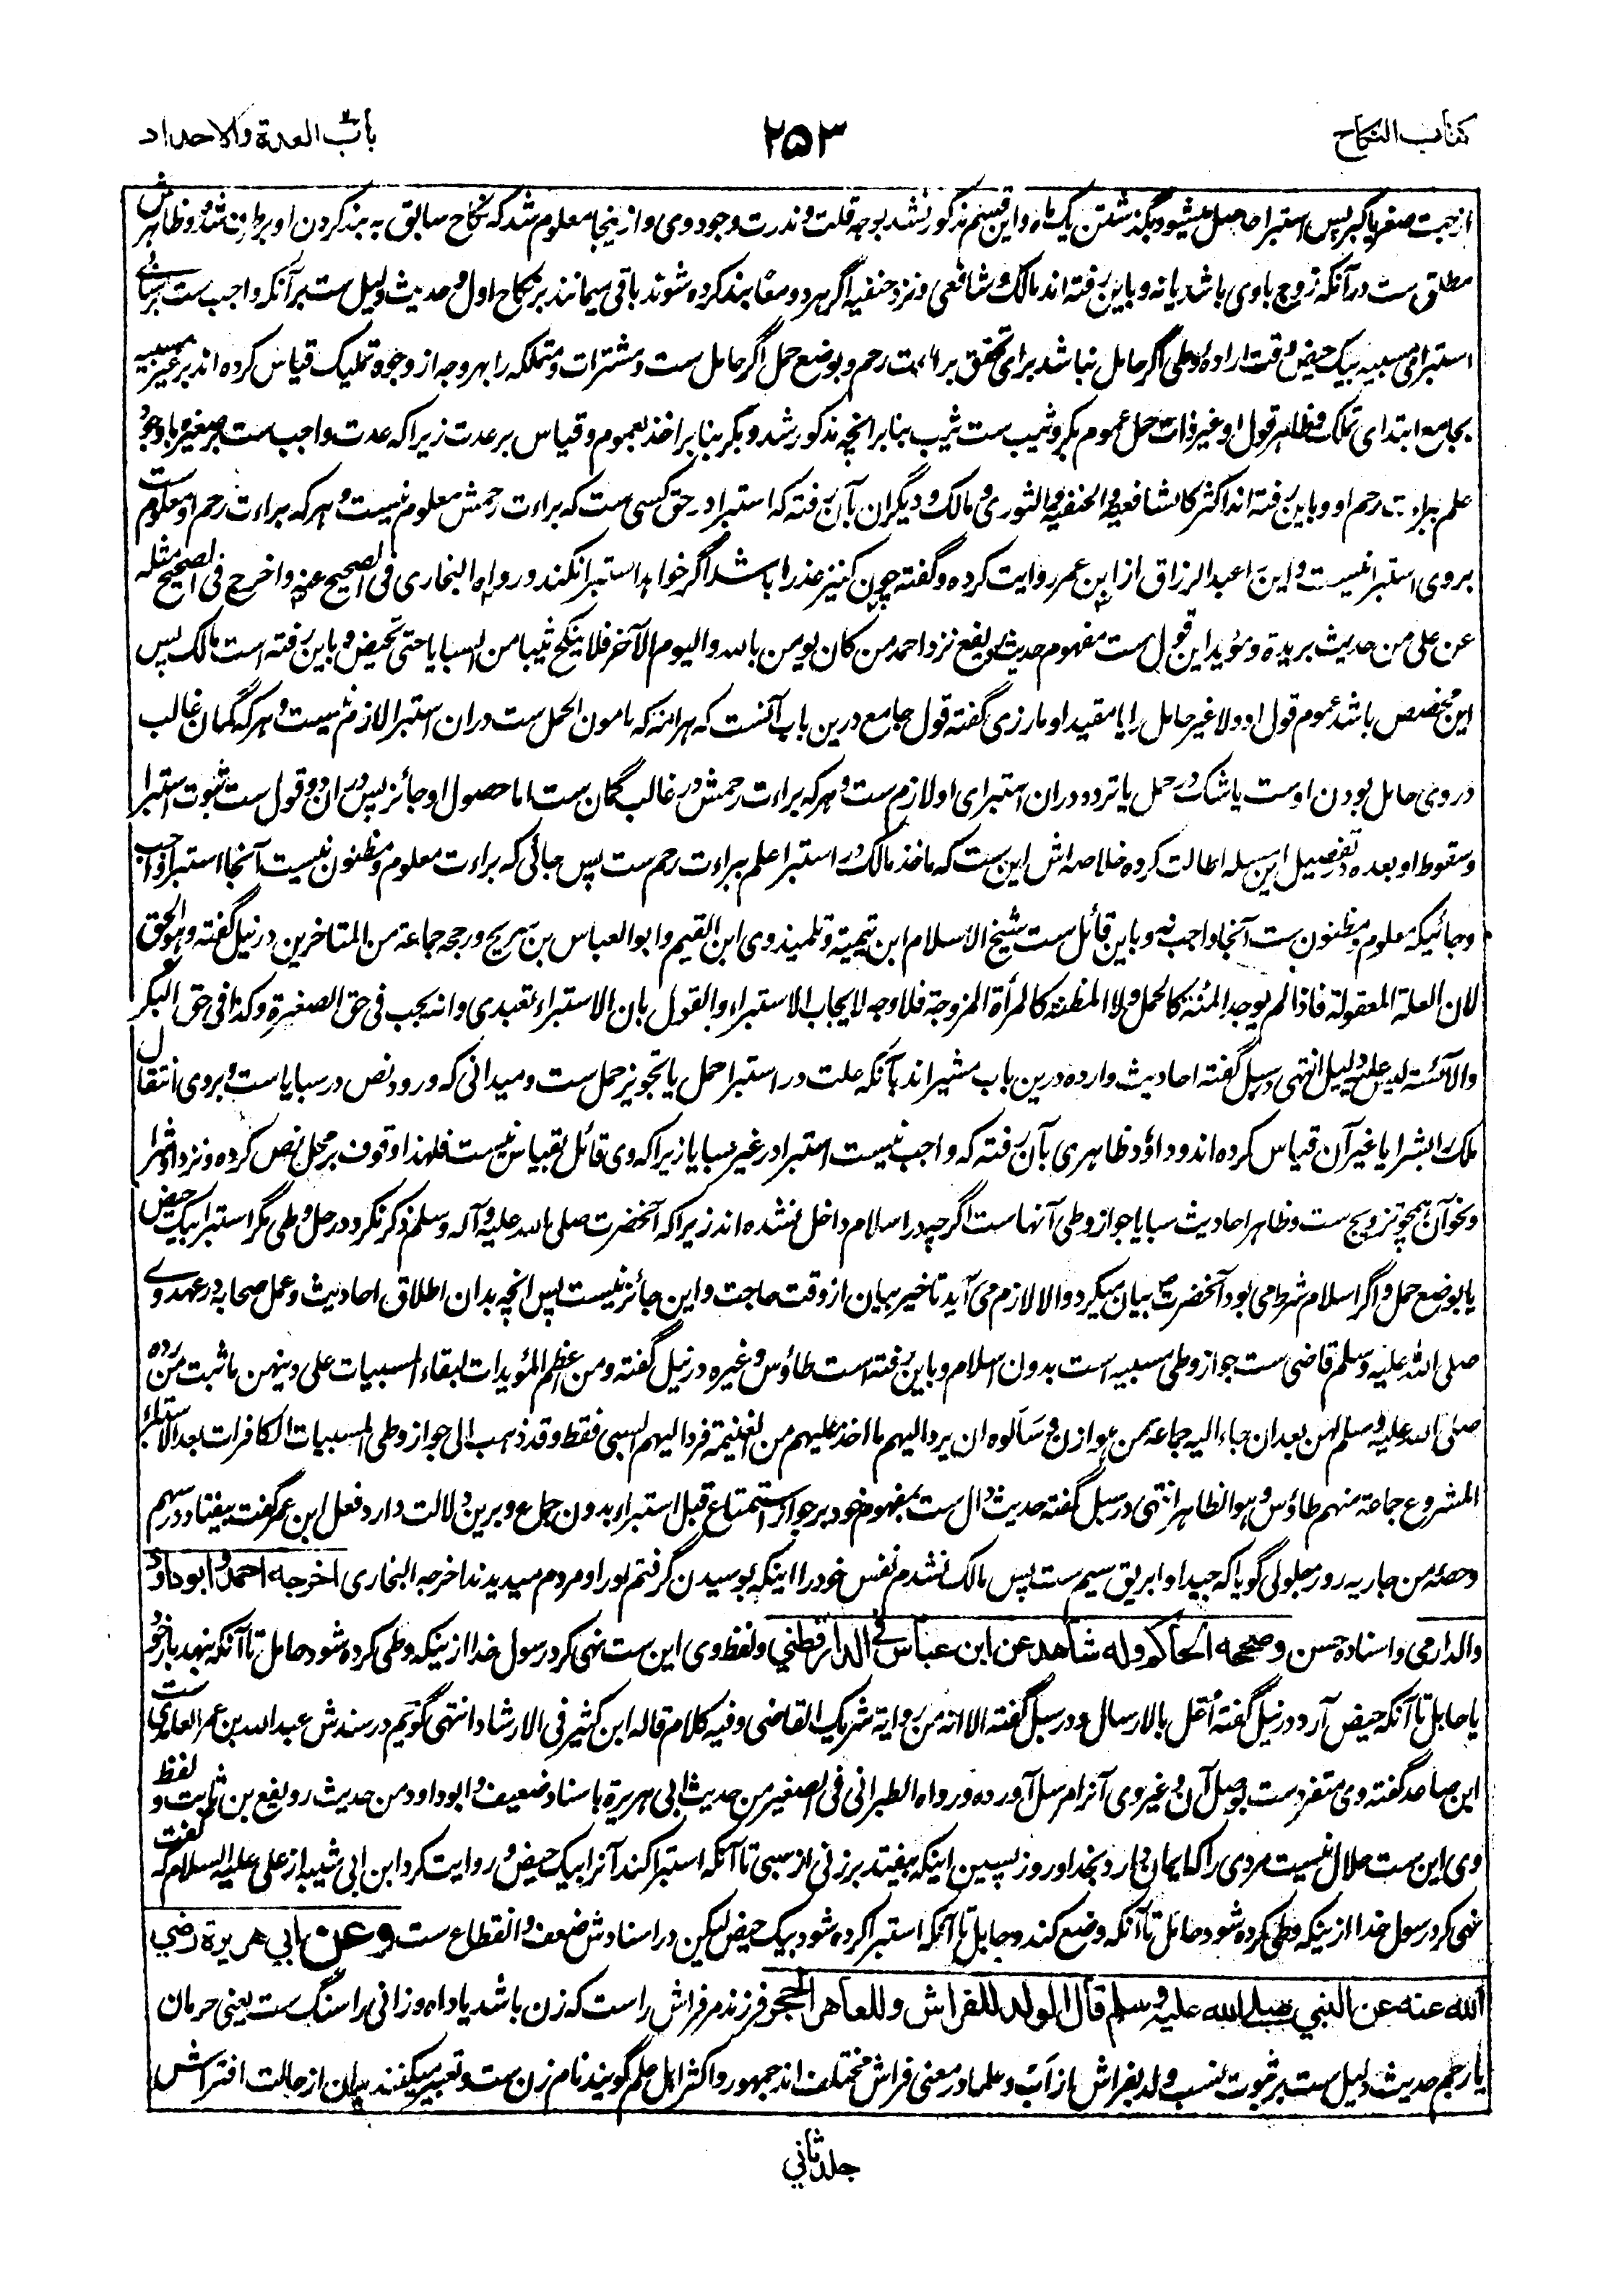 كتاب النكاح
۲۵۳
باب العدة والاحداد
از جهت صغر یا کبر پس استبرا حاصل میشود بگذشتن یک ماه و این قسم مذکور نشد بوجه قلت و ندرت وجود وی و ازینجا معلوم شد که نکاح سابق به بند کردن او برطرف شد و ظاهرش
مطلق ست در آنکه زوج با وی باشد یا نه و باین رفته اند مالک و شافعی و نزد حنفیه اگر هر دو معًا بند کرده شوند باقی میمانند بر نکاح اول و حدیث دلیل ست بر آنکه واجب ست بر سابی
استبرای مسبیه بیک حیض وقت اراده وطی اگر حامل نباشد برای تحقق براءت رحم و بوضع حمل اگر حامل ست و مشترات و متملکه را بهر وجه از وجوه تملیک قیاس کرده اند بر مسبیه
بجامع ابتدای تملک و ظاهر قول او غیر ذات حمل عموم بکر و ثیب ست ثیب بنا بر انچه مذکور شد و بکر بنا بر اخذ بعموم و قیاس بر عدت زیرا که عدت واجب ست بر صغیره باوجود
علم ببراءت رحم او و باین رفته اند اکثر کالشافعیه و الحنفیه و الثوری و مالک و دیگران بآن رفته که استبرا در حق کسی ست که براءت رحمش معلوم نیست و هر که براءت رحم او معلوم ست
بروی استبرا نیست و این را عبد الرزاق از ابن عمر روایت کرده و گفته چون کنیز عذرا باشد اگر خواهد استبرا نکند و رواه البخاری فی الصحیح عنه و اخرج فی الصحیح مثله
عن علی من حدیث بریدة و مؤید این قول ست مفهوم حدیث رویفع نزد احمد من کان یومن بالله والیوم الآخر فلا ینکح ثیبا من السبایا حتی تحیض و باین رفته است مالک پس
این مخصص باشد عموم قول او ولا غیر حامل را یا مقید او مارزی گفته قول جامع درین باب آنست که هر امة که مامون الحمل ست دران استبرا لازم نیست و هر که گمان غالب
در وی حامل بودن اوست یا شک در حمل یا تردد دران استبرای او لازم ست و هر که براءت رحمش در غالب گمان ست اما حصول او جائز پس دران دو قول ست ثبوت استبرا
و سقوط او بعده در تفصیل این مسله اطالت کرده خلاصه اش این ست که ماخذ مالک در استبرا علم ببراءت رحم ست پس جائی که براءت معلوم و مظنون نیست آنجا استبرا واجب
و جائیکه معلوم و مظنون ست آنجا واجب نه و باین قائل ست شیخ الاسلام ابن تیمیة و تلمیذ وی ابن القیم و ابو العباس بن سریج و رجحه جماعة من المتاخرین در نیل گفته و هو الحق
لان العلة المعقولة فاذا لم یوجد المئنة کالحمل ولا المظنة کالمرأة المزوجة فلا وجه لایجاب الاستبراء والقول بان الاستبراء تعبدی وانه یجب فی حق الصغیرة وکذا فی حق البکر
والآئسة لیس علیه دلیل انتهی در سبل گفته احادیث وارده درین باب مشیر اند بآنکه علت در استبرا حمل یا تجویز حمل ست و میدانی که ورود نص در سبایاست و بروی انتقال
ملک بالشرا یا غیر آن قیاس کرده اند و داؤد ظاهری بآن رفته که واجب نیست استبرا در غیر سبایا زیرا که وی قائل بقیاس نیست فلهذا وقوف بر محل نص کرده و نزد او شرا
و نحو آن همچو تزویج ست و ظاهر احادیث سبایا جواز وطی آنهاست اگرچه در اسلام داخل نشده اند زیرا که آنحضرت صلی الله علیه و آله وسلم ذکر نکرد در حل وطی مگر استبرا بیک حیض
یا بوضع حمل و اگر اسلام شرط می بود آنحضرت بیان میکرد والا لازم می آید تاخیر بیان از وقت حاجت و این جائز نیست پس انچه بدان اطلاق احادیث و عمل صحابه در عهد وے
صلی الله علیه وسلم قاضی ست جواز وطی مسبیه است بدون اسلام و باین رفته است طاؤس و غیره در نیل گفته ومن اعظم المؤیدات لبقاء المسبیات علی دینهن ما ثبت من رده
صلی الله علیه وسلم لهن بعد ان جاء الیه جماعة من هوازن وسألوه ان یرد الیهم ما اخذ علیهم من الغنیمة فرد الیهم السبی فقط وقد ذهب الی جواز وطی المسبیات الکافرات بعد الاستبراء
المشروع جماعة منهم طاؤس وهو الظاهر انتهی در سبل گفته حدیث دال ست بمفهوم خود بر جواز استمتاع قبل استبرا بدون جماع و برین دلالت دارد فعل ابن عمر گفت بیفتاد در سهم
و حصه من جاریه روز جلولا گویا که جید او ابریق سیم ست پس مالک نشدم نفس خود را اینکه بوسیدن گرفتم او را و مردم میدیدند اخرجه البخاری اخرجه احمد و ابو داود
والدارمی و اسناده حسن وصححه الحاکم وله شاهد عن ابن عباس فی الدارقطنی ولفظ وی این ست نهی کرد رسول خدا ازینکه وطی کرده شود حامل تا آنکه بنهد بار خود
یا حایل تا آنکه حیض آرد در نیل گفته اعل بالارسال و در سبل گفته الا انه من روایة شریک القاضی وفیه کلام قاله ابن کثیر فی الارشاد انتهی گویم در سندش عبد الله بن عمر العابدی ست
ابن صاعد گفته وی متفرد ست بوصل آن و غیر وی آنرا مرسل آورده و رواه الطبرانی فی الصغیر من حدیث ابی هریرة باسناد ضعیف و ابو داود من حدیث رویفع بن ثابت و لفظ
وی این ست حلال نیست مردی را که ایمان دارد بخدا و روز پسین اینکه بیفتد بر زنی از سبی تا آنکه استبرا کند آنرا بیک حیض و روایت کرد ابن ابی شیبه از علی علیه السلام که گفت
نهی کرد رسول خدا ازینکه وطی کرده شود حامل تا آنکه وضع کند و حایل تا آنکه استبرا کرده شود بیک حیض لیکن در اسنادش ضعف و انقطاع ست وعن ابي هريرة رضي
الله عنه عن النبي صلى الله عليه وسلم قال الولد للفراش وللعاهر الحجر فرزند مر فراش راست که زن باشد یا داه و زانی را سنگ ست یعنی حرمان
یا رجم حدیث دلیل ست بر ثبوت نسب ولد بفراش از اَب و علما در معنی فراش مختلف اند جمهور و اکثر اهل علم گویند نام زن ست و تعبیر میکنند بدان از حالت افتراش
جلد ثاني